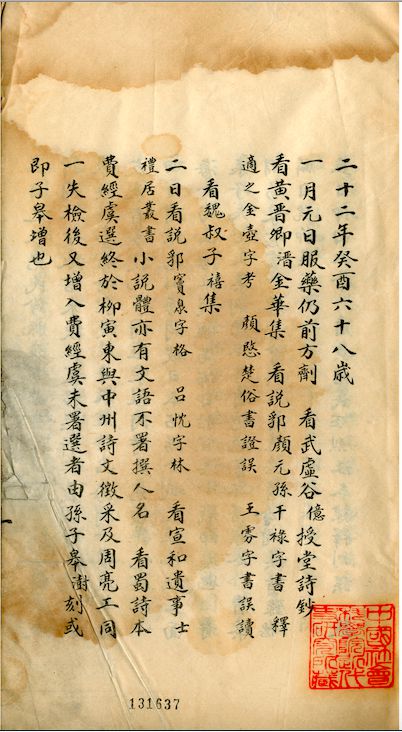 二十二年癸酉六十八歲
一月元日服藥仍前方劑 看武虛谷億授堂詩鈔
看黃晉卿溍金華集 看說郛顏元孫干祿字書 釋
適之金壺字考 顏愍楚俗書證誤 王雱字書誤讀
看魏叔子禧集
二日看說郛竇臮字格 呂忱字林 看宣和遺事士
禮居叢書小說體亦有文語不署撰人名 看蜀詩本
費經虞選終於柳寅東與中州詩文徵采及周亮工同
一失檢後又增入費經虞未署選者由孫子皋澍刻或
即子皋增也
中國社會
科學院近代
史研究所藏
131637